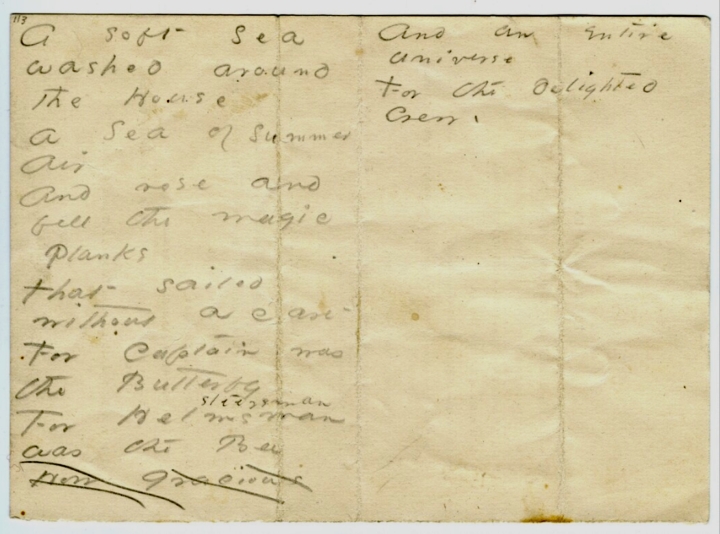 113
A soft Sea
washed around
the House
A Sea of Summer
Air
And rose and
fell the magic
Planks
that sailed
without a care -
For Captain was
the Butterfly
steersman
For Helmsman
was the Bee
How gracious
And an entire
universe
For the delighted
crew.